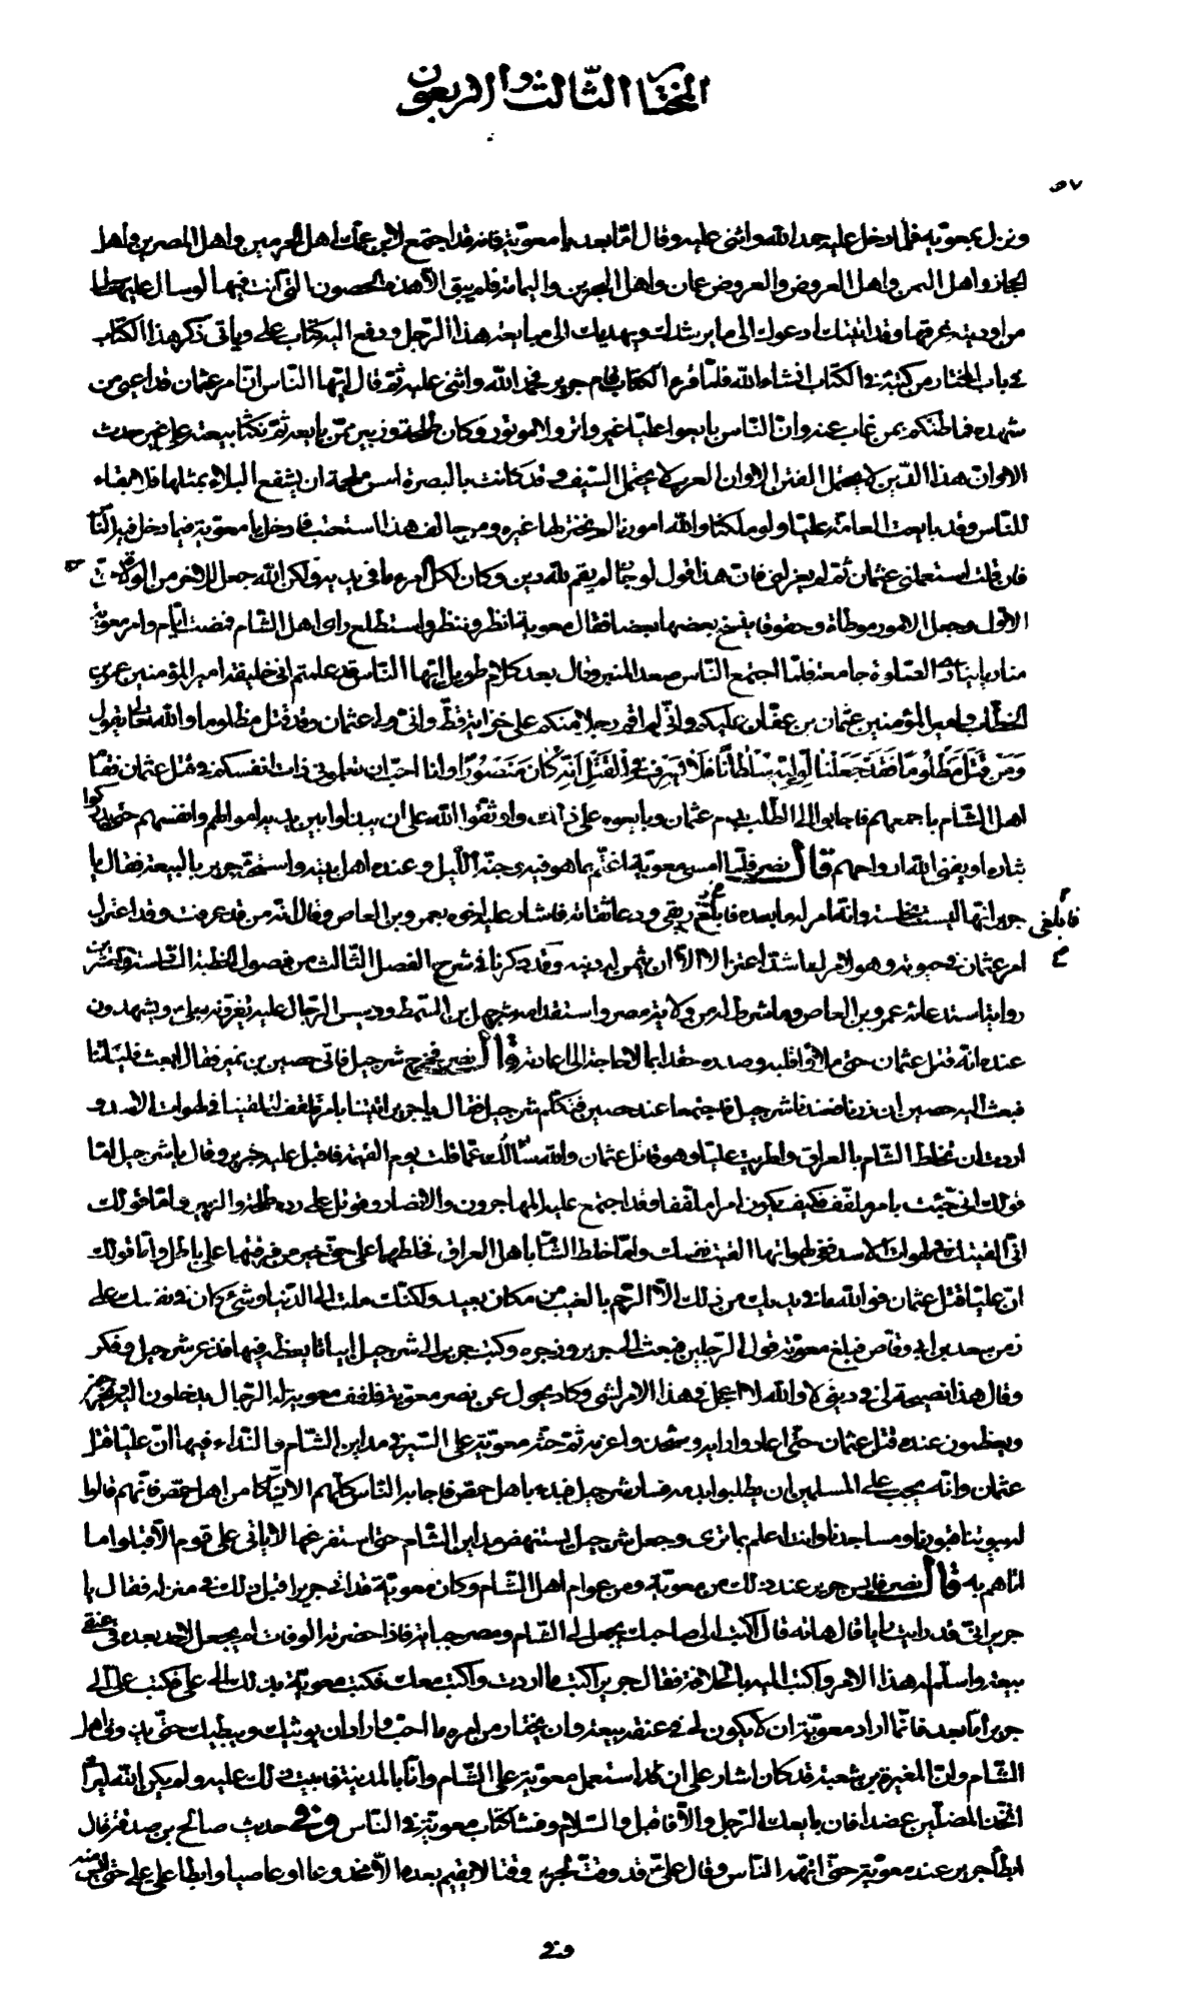 المختار الثالث والاربعون
٥٧
ونزل بمعوية فلما دخل عليه حمد الله واثنى عليه وقال امّا بعد يا معوية فانه قد اجتمع لابن عمّك اهل الحرمين واهل المصرين واهل
الحجاز واهل اليمن واهل العروض والعروض عمان واهل البحرين واليمامة فلم يبق الّا هذه الحصون التى انت فيها لو سال عليها سيل
من اوديته غرقها وقد اتيتك ادعوك الى ما يرشدك ويهديك الى مبايعة هذا الرّجل ودفع اليه كتاب على وياتى ذكر هذا الكتاب
فى باب المختار من كتبه فى الكتاب انشاء الله فلمّا قرء الكتاب قام جرير فحمد الله واثنى عليه ثمّ قال ايّها النّاس انّ امر عثمان قد اعيى من
شهده فما ظنّكم بمن غاب عنه وانّ النّاس بايعوا عليّا غير واتر ولا موتور وكان طلحة وزبير ممّن بايعه ثمّ نكثا بيعته على غير حدث
الا وانّ هذا الدّين لا يحتمل الفتن الا وان العرب لا يحتمل السّيف وقد كانت بالبصرة امس ملحمة ان يشفع البلاء بمثلها فلا بقاء
للنّاس وقد بايعت العامّة عليّا ولو ملكنا والله امورنا لم نختر لها غيره ومن خالف هذا استعتب فادخل يا معوية فيما دخل فيه النّاس
فان قلت استعملنى عثمان ثمّ لم يعزلنى فانّ هذا قول لو جاز لم يقم لله دين وكان لكل امرء ما فى يديه ولكن الله جعل للاخر من الولاة حقّ
الاوّل وجعل الامور موطأة وحقوقا ينسخ بعضها بعضا فقال معوية انظر وننظر واستطلع راى اهل الشّام فمضت ايّام وامر معوية
مناديا ينادى الصّلوة جامعة فلمّا اجتمع النّاس صعد المنبر وقال بعد كلام طويل ايّها النّاس قد علمتم انى خليفة امير المؤمنين عمر بن
الخطّاب وامير المؤمنين عثمان بن عفّان عليكم وانّى لم اقم رجلا منكم على خزاية قطّ وانّى ولىّ عثمان وقد قتل مظلوما والله تعالى يقول
وَمَن قُتِلَ مَظْلُومًا فَقَدْ جَعَلْنَا لِوَلِيِّهِ سُلْطَانًا فَلَا يُسْرِف فِى الْقَتْلِ اِنَّهُ كَانَ مَنْصُورًا وانا احبّ ان تعلمونى ذات انفسكم فى قتل عثمان فقام
اهل الشّام باجمعهم فاجابوا الى الطّلب بدم عثمان وبايعوه على ذلك واوثقوا الله على ان يبذلوا بين يديه اموالهم وانفسهم حتّى يدركوا
ثاره او يفنى الله ارواحهم قال نصر فلمّا امسى معوية اغتمّ بما هو فيه وجنّه اللّيل وعنده اهل بيته واستحثّه جرير بالبيعة فقال يا
جرير انّها ليست بخلسة وانّه امر له ما بعده فابلعنى ريقى ودعا ثقاته فاشار عليه اخوه بعمرو بن العاص وقال انّه من قد عرفت وقد اعتزل
فابلغنى
امر عثمان فى حيوته وهو لامرك اشدّ اعتزالا الّا ان يثمن له دينه وقد ذكرنا فى شرح الفصل الثّالث من فصول الخطبة السّادسة والعشرين
رواية استدعائه عمرو بن العاص وما شرط له من ولاية مصر واستقدامه شرحبيل بن السّمط ودسيس الرّجال عليه يغرونه بعلى ويشهدون
عنده انّه قتل عثمان حتى ملاؤا قلبه وصدره حقدا بما لا حاجة الى اعادته قال نصر فخرج شرحبيل فاتى حصين بن نمير فقال ابعث فلياتنا
فبعث اليه حصين ان زرنا فعندنا شرحبيل فاجتمعا عند حصين فتكلّم شرحبيل فقال يا جرير اتيتنا بامر ملفّف لتلقينا فى لهوات الاسد و
اردت ان تخلط الشّام بالعراق واطريت عليّا وهو قاتل عثمان والله سائلك عمّا قلت يوم القيمة فاقبل عليه جرير وقال يا شرحبيل امّا
قولك انى جئت بامر ملفّف فكيف يكون امرا ملفّفا وقد اجتمع عليه المهاجرون والانصار وقوتل على ردّه طلحة والزبير وامّا قولك
انّى القيتك فى لهوات الاسد ففى لهواتها القيت نفسك وامّا خلط الشّام باهل العراق فخلطهما على حقّ خير من فرقتهما على باطل وامّا قولك
انّ عليّا قتل عثمان فوالله ما فى يديك من ذلك الّا الرّجم بالغيب من مكان بعيد ولكنّك ملت الى الدّنيا وشىء كان فى نفسك على
زمن سعد بن ابى وقّاص فبلغ معوية قول الرّجلين فبعث الى جرير وزجره وكتب جرير الى شرحبيل ابياتا يعظه فيها فذعر شرحبيل وفكر
وقال هذا نصيحة لى فى دينى لا والله لا اعجل فى هذا الامر لشىء وكاد يحول عن نصر معوية فلفّف معوية له الرّجال يدخلون اليه ويخرجون
ويعظمون عنده قتل عثمان حتّى اعادوا رايه وشحذوا عزمه ثمّ حثّه معوية على السّير فى مداين الشّام والنّداء فيها انّ عليّا قتل
عثمان وانّه يجب على المسلمين ان يطلبوا بدمه فسار شرحبيل فبدء باهل حمص فاجابه النّاس كلّهم الّا نسّاكا من اهل حمص فانّهم قالوا
له بيوتنا قبورنا ومساجدنا وانت اعلم بما ترى وجعل شرحبيل يستنهض مداين الشّام حتى استفرغها لا ياتى على قوم الّا قبلوا ما
اتاهم به قال نصر فايس جرير عند ذلك من معوية ومن عوام اهل الشّام وكان معوية قد اتى جريرا قبل ذلك فى منزله فقال يا
جرير انّى قد رايت رايا قال هاته قال اكتب الى صاحبك يجعل لى الشّام ومصر جباية فاذا حضرته الوفات لم يجعل لاحد بعده فى عنقى
بيعة واسلّم له هذا الامر واكتب اليه بالخلافة فقال جرير اكتب ما اردت واكتب معك فكتب معوية بذلك الى على فكتب على الى
جرير امّا بعد فانّما اراد معوية ان لا يكون لى فى عنقه بيعة وان يختار من امره ما احبّ واراد ان يريثك ويبطيك حتّى يذوق اهل
الشّام وانّ المغيرة بن شعبة قد كان اشار على ان استعمل معوية على الشّام وانا بالمدينة فابيت ذلك عليه ولم يكن الله ليرانى
اتّخذ المضلّين عضدا فان بايعك الرّجل والّا فاقبل والسّلام وفشا كتاب معوية فى النّاس وفى حديث صالح بن صدقة قال
ابطأ جرير عند معوية حتّى اتّهمه النّاس وقال علىّ قد وقّتّ لجرير وقتا لا يقيم بعده الّا مخدوعا او عاصيا وابطا على على حتّى ايس منه
وفى